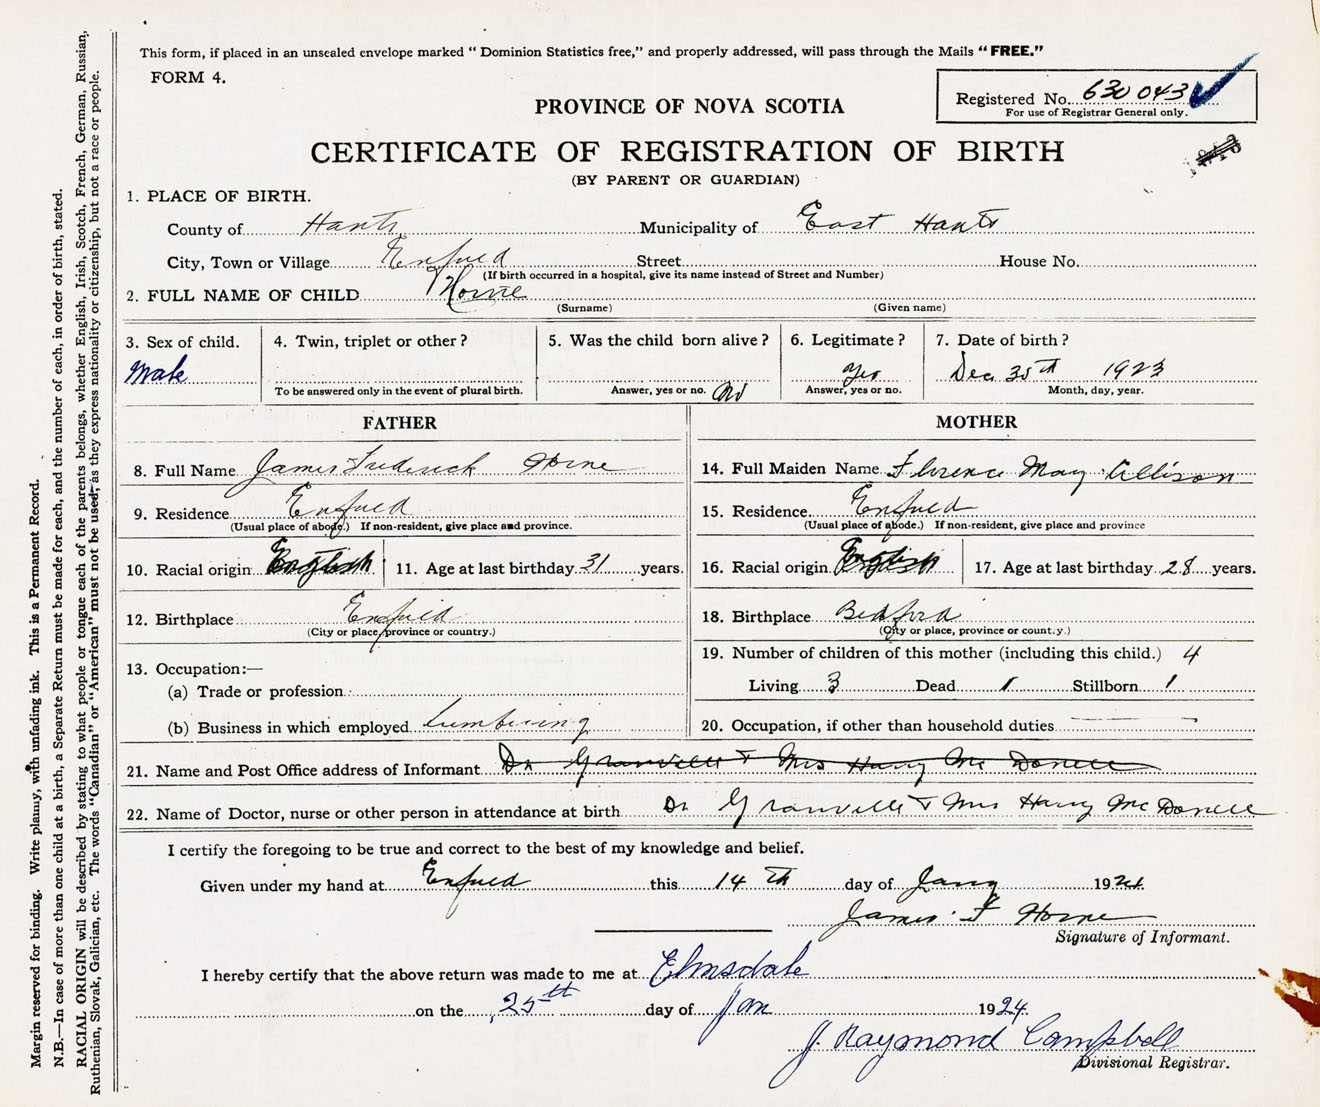 This form, if placed in an unsealed envelope marked "Dominion Statistics free," and properly addressed, will pass through the Mails "FREE."
FORM 4.
Registered No. 630 043
For use of Registrar General only.
PROVINCE OF NOVA SCOTIA
CERTIFICATE OF REGISTRATION OF BIRTH
(BY PARENT OR GUARDIAN)
1. PLACE OF BIRTH.
County of Hants Municipality of East Hants
City, Town or Village Enfield Street House No.
(If birth occurred in a hospital, give its name instead of Street and Number)
2. FULL NAME OF CHILD Horne
(Surname) (Given name)
3. Sex of child. 4. Twin, triplet or other? 5. Was the child born alive? 6. Legitimate? 7. Date of birth?
Male Yes Dec 1923
To be answered only in the event of plural birth. Answer, yes or no. No Answer, yes or no. Month, day, year.
FATHER MOTHER
8. Full Name James Frederick Horne 14. Full Maiden Name Florence May Allison
9. Residence Enfield 15. Residence Enfield
(Usual place of abode.) If non-resident, give place and province. (Usual place of abode.) If non-resident, give place and province
10. Racial origin English 11. Age at last birthday 31 years. 16. Racial origin English 17. Age at last birthday 28 years.
12. Birthplace Enfield 18. Birthplace Bedford
(City or place, province or country.) (City or place, province or county.)
13. Occupation:— 19. Number of children of this mother (including this child.) 4
(a) Trade or profession Living 3 Dead 1 Stillborn 1
(b) Business in which employed Lumbering 20. Occupation, if other than household duties
21. Name and Post Office address of Informant Dr Granville + Mrs Harry Mc Donell
22. Name of Doctor, nurse or other person in attendance at birth Dr Granville + Mrs Harry Mc Donell
I certify the foregoing to be true and correct to the best of my knowledge and belief.
Given under my hand at Enfield this 14 th day of Jany 1924.
James F Horne
Signature of Informant.
I hereby certify that the above return was made to me at Elmsdale
on the 25th day of Jan 1924.
J. Raymond Campbell
Divisional Registrar.
Margin reserved for binding. Write plainly, with unfading ink. This is a Permanent Record.
N.B.—In case of more than one child at a birth, a Separate Return must be made for each, and the number of each, in order of birth, stated.
RACIAL ORIGIN will be described by stating to what people or tongue each of the parents belongs, whether English, Irish, Scotch, French, German, Russian,
Ruthenian, Slovak, Galician, etc. The words "Canadian" or "American" must not be used, as they express nationality or citizenship, but not a race or people.